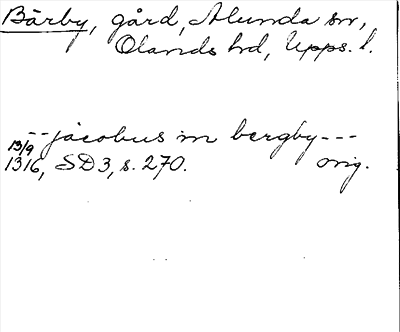 Bärby, gård, Alunda sn,
Olands hd, Upps. l.
-- jacobus in bergby ---
13/9
1316, SD3, s. 270. orig.